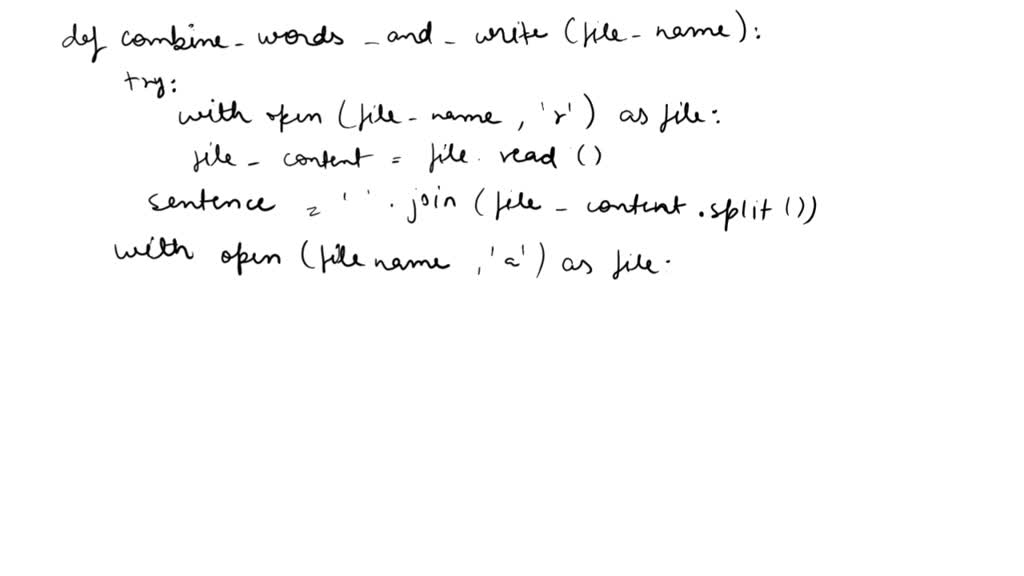 def combine_words_and_write (file_name):
try:
with open (file_name, 'r') as file:
file_content = file.read ()
sentence = ' '.join (file_content.split())
with open (file name, 'a') as file: